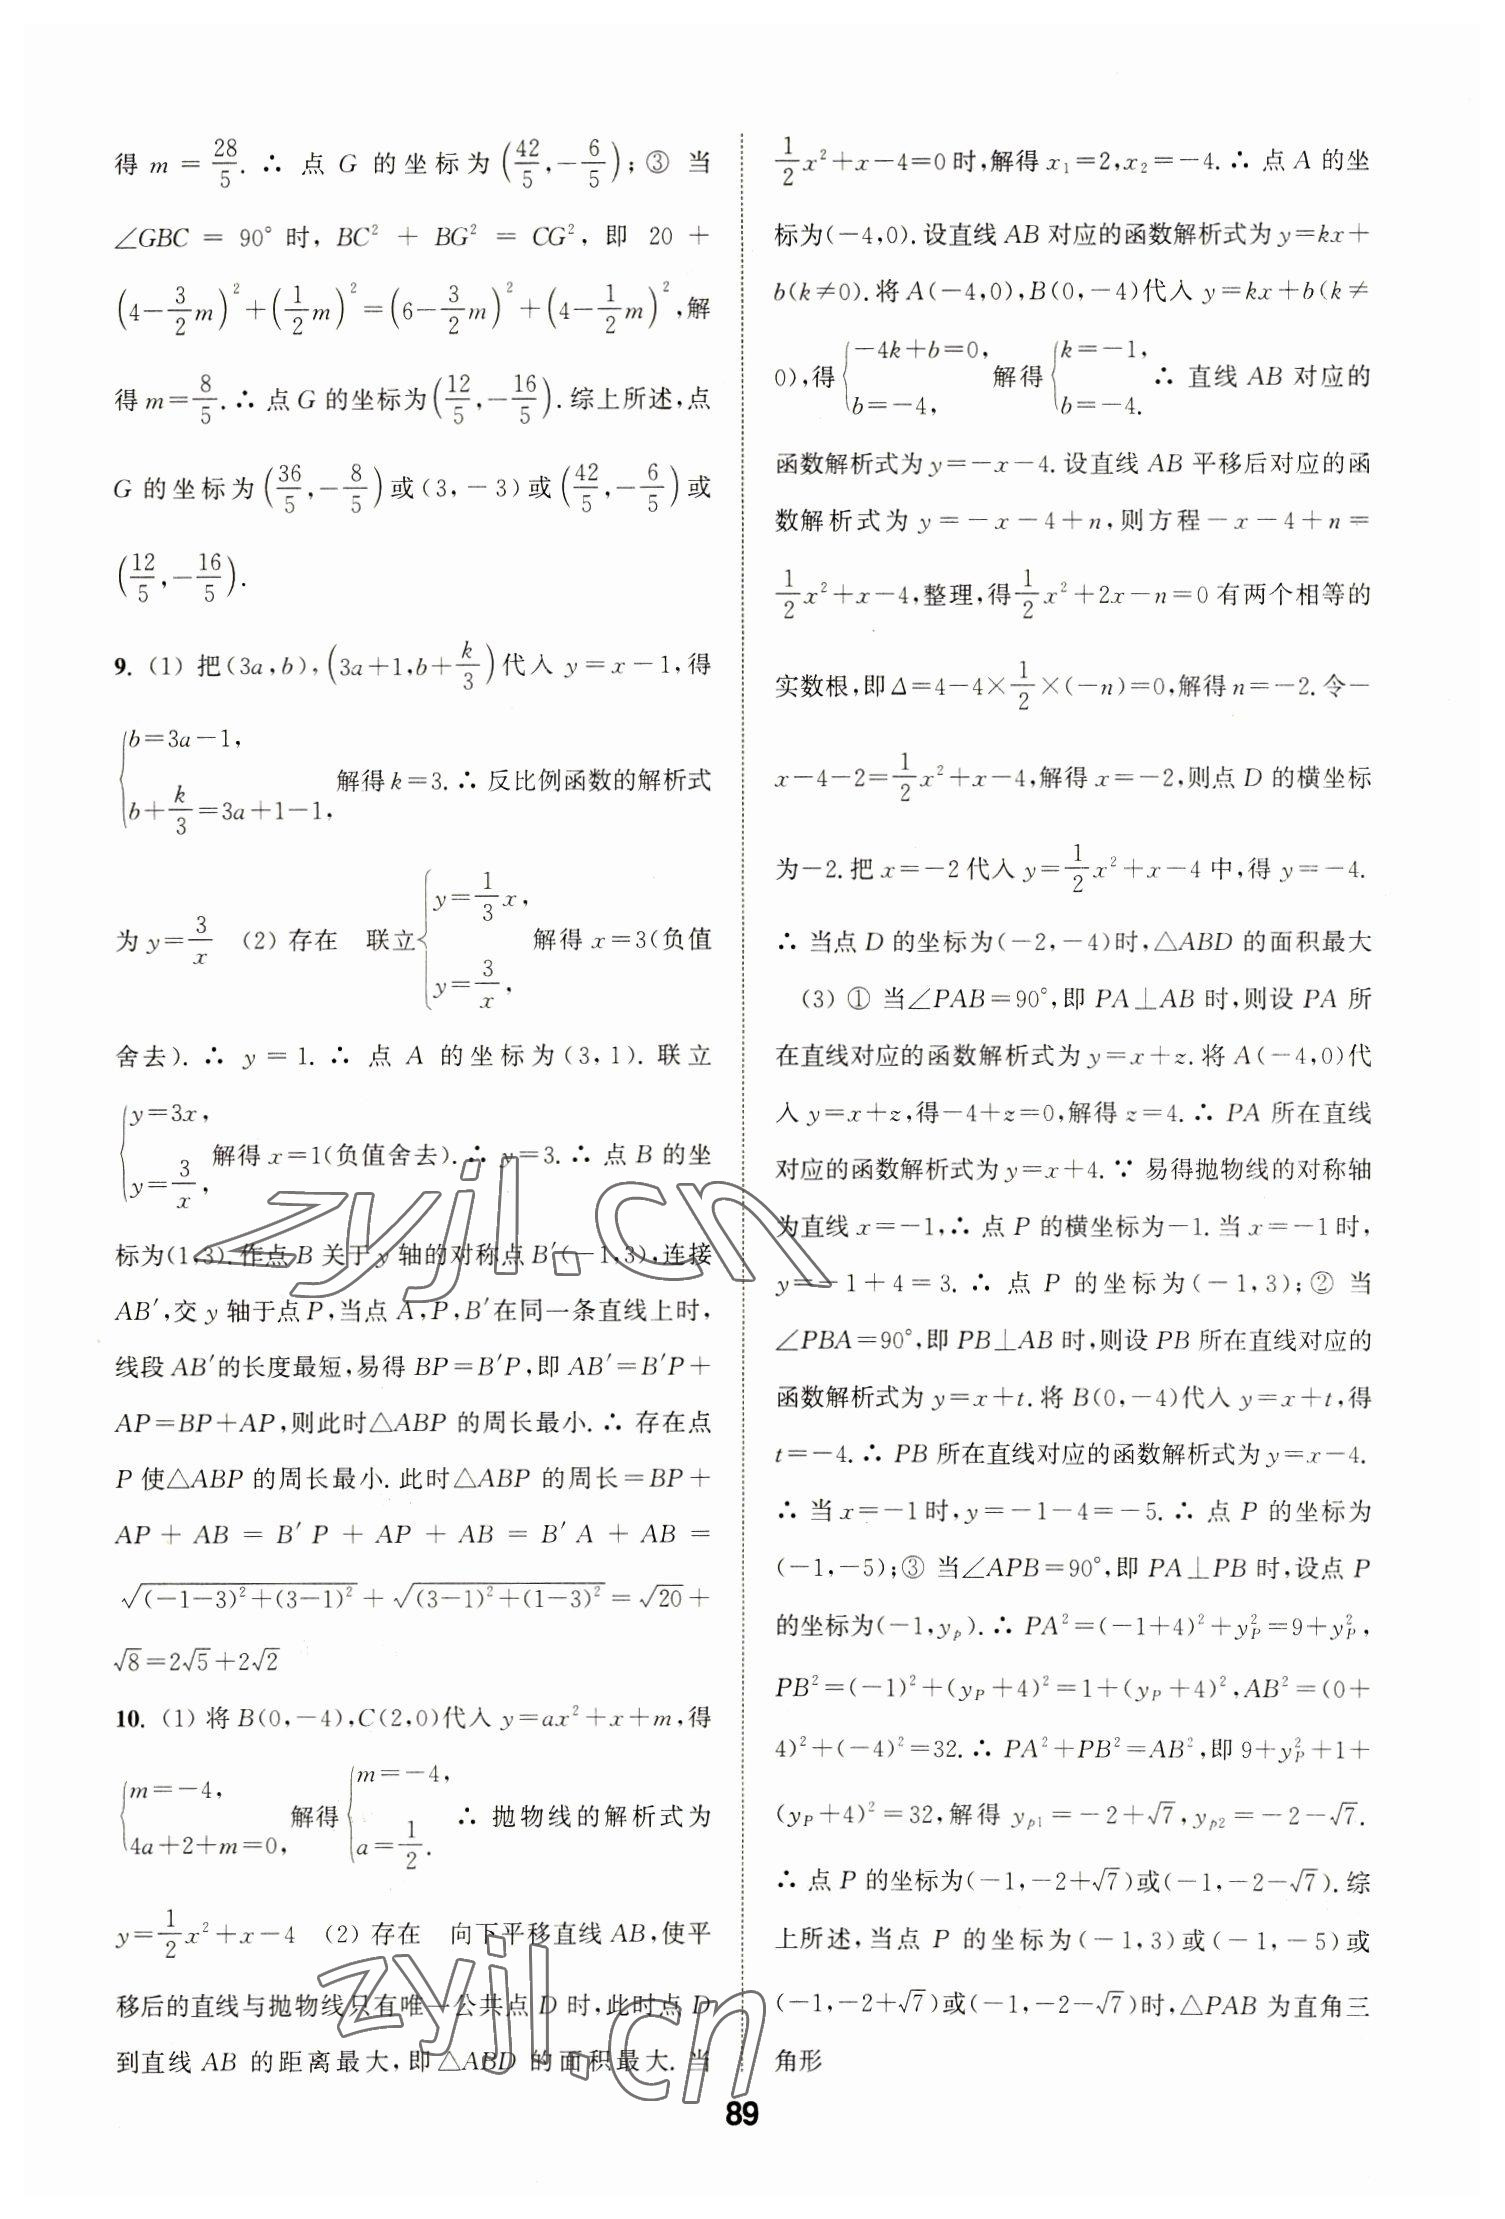 得 m = 28/5. ∴ 点 G 的坐标为 (42/5, -6/5); ③ 当
∠GBC = 90° 时, BC² + BG² = CG², 即 20 +
(4-3/2m)²+(1/2m)²=(6-3/2m)²+(4-1/2m)²,解
得 m=8/5. ∴ 点 G 的坐标为(12/5, -16/5). 综上所述,点
G 的坐标为(36/5, -8/5)或(3, -3)或(42/5, -6/5)或
(12/5, -16/5).
9. (1) 把(3a,b), (3a+1,b+k/3)代入 y=x-1,得
{b=3a-1, b+k/3=3a+1-1, 解得 k=3. ∴ 反比例函数的解析式
为 y=3/x (2) 存在 联立{y=1/3x, y=3/x, 解得 x=3(负值
舍去). ∴ y=1. ∴ 点 A 的坐标为(3,1). 联立
{y=3x, y=3/x, 解得 x=1(负值舍去). ∴ y=3. ∴ 点 B 的坐
标为(1,3). 作点 B 关于 y 轴的对称点 B′(-1,3),连接
AB′,交 y 轴于点 P,当点 A,P,B′在同一条直线上时,
线段 AB′的长度最短,易得 BP=B′P,即 AB′=B′P+
AP=BP+AP,则此时△ABP 的周长最小. ∴ 存在点
P 使△ABP 的周长最小. 此时△ABP 的周长=BP+
AP + AB = B′P + AP + AB = B′A + AB =
√((-1-3)²+(3-1)²) + √((3-1)²+(1-3)²) = √20 +
√8=2√5+2√2
10. (1) 将 B(0,-4),C(2,0)代入 y=ax²+x+m,得
{m=-4, 4a+2+m=0, 解得{m=-4, a=1/2. ∴ 抛物线的解析式为
y=1/2x²+x-4 (2) 存在 向下平移直线 AB,使平
移后的直线与抛物线只有唯一公共点 D 时,此时点 D
到直线 AB 的距离最大,即△ABD 的面积最大. 当
1/2x²+x-4=0 时,解得 x₁=2,x₂=-4. ∴ 点 A 的坐
标为(-4,0). 设直线 AB 对应的函数解析式为 y=kx+
b(k≠0). 将 A(-4,0),B(0,-4)代入 y=kx+b(k≠
0),得{-4k+b=0, b=-4, 解得{k=-1, b=-4. ∴ 直线 AB 对应的
函数解析式为 y=-x-4. 设直线 AB 平移后对应的函
数解析式为 y=-x-4+n,则方程-x-4+n=
1/2x²+x-4,整理,得1/2x²+2x-n=0 有两个相等的
实数根,即 Δ=4-4×1/2×(-n)=0,解得 n=-2. 令-
x-4-2=1/2x²+x-4,解得 x=-2,则点 D 的横坐标
为-2. 把 x=-2 代入 y=1/2x²+x-4 中,得 y=-4.
∴ 当点 D 的坐标为(-2,-4)时,△ABD 的面积最大
(3) ① 当∠PAB=90°,即 PA⊥AB 时,则设 PA 所
在直线对应的函数解析式为 y=x+z. 将 A(-4,0)代
入 y=x+z,得-4+z=0,解得 z=4. ∴ PA 所在直线
对应的函数解析式为 y=x+4. ∵ 易得抛物线的对称轴
为直线 x=-1,∴ 点 P 的横坐标为-1. 当 x=-1 时,
y=-1+4=3. ∴ 点 P 的坐标为(-1,3); ② 当
∠PBA=90°,即 PB⊥AB 时,则设 PB 所在直线对应的
函数解析式为 y=x+t. 将 B(0,-4)代入 y=x+t,得
t=-4. ∴ PB 所在直线对应的函数解析式为 y=x-4.
∴ 当 x=-1 时,y=-1-4=-5. ∴ 点 P 的坐标为
(-1,-5); ③ 当∠APB=90°,即 PA⊥PB 时,设点 P
的坐标为(-1,yₚ). ∴ PA²=(-1+4)²+y_P²=9+y_P²,
PB²=(-1)²+(y_P+4)²=1+(y_P+4)²,AB²=(0+
4)²+(-4)²=32. ∴ PA²+PB²=AB²,即 9+y_P²+1+
(y_P+4)²=32,解得 y_p1=-2+√7,y_p2=-2-√7.
∴ 点 P 的坐标为(-1,-2+√7)或(-1,-2-√7). 综
上所述,当点 P 的坐标为(-1,3)或(-1,-5)或
(-1,-2+√7)或(-1,-2-√7)时,△PAB 为直角三
角形
89
zyjl.cn
zyjl.cn